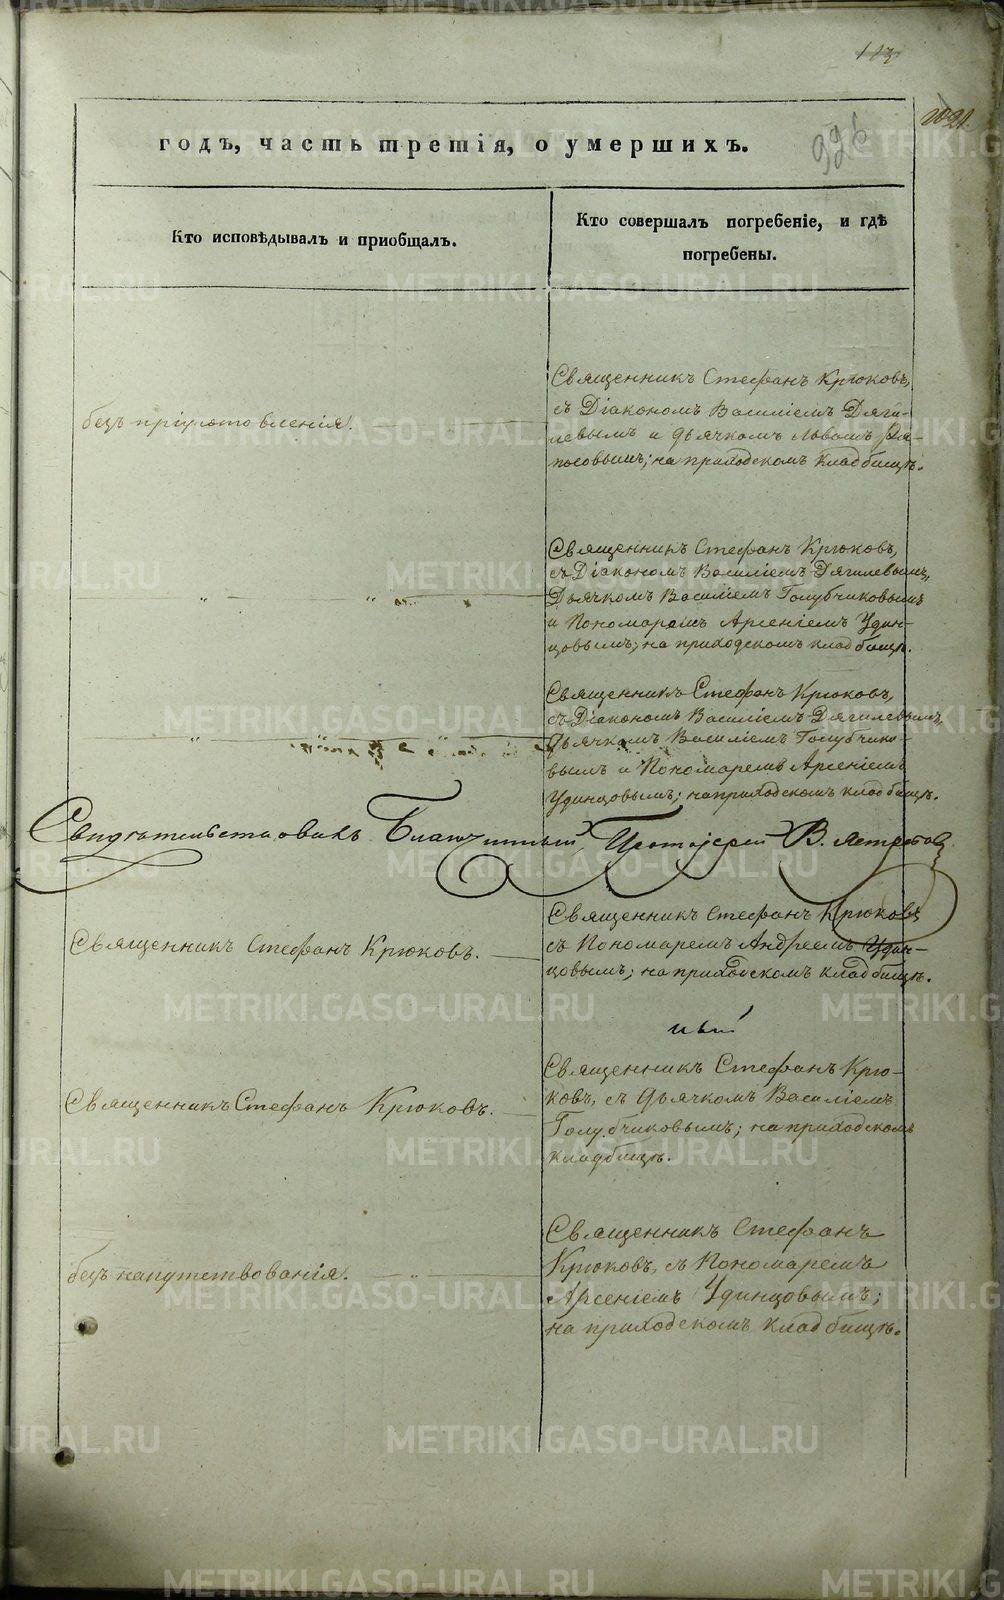 113
226
годъ, часть третія, о умершихъ.
Кто исповѣдывалъ и пріобщалъ.
Кто совершалъ погребеніе, и гдѣ
погребены.
безъ пріуготовленія.
Священникъ Стефанъ Крюковъ,
съ Діакономъ Василіемъ Дяги-
левымъ и дьячкомъ
на приходскомъ кладбищѣ.
Священникъ Стефанъ Крюковъ,
съ Діакономъ Василіемъ Дягилевымъ,
Дьячкомъ Василіемъ Голубчиковымъ
и Пономаремъ Арсеніемъ Удин-
цовымъ; на приходскомъ кладбищѣ.
Священникъ Стефанъ Крюковъ,
съ Діакономъ Василіемъ Дягилевымъ,
Дьячкомъ Василіемъ Голубчико-
вымъ и Пономаремъ Арсеніемъ
Удинцовымъ; на приходскомъ кладбищѣ.
Свидѣтельствовалъ Благочинный Протоіерей В.
Священникъ Стефанъ Крюковъ.
Священникъ Стефанъ Крюковъ
съ Пономаремъ Андреемъ Удин-
цовымъ; на приходскомъ кладбищѣ.
ный
Священникъ Стефанъ Крюковъ.
Священникъ Стефанъ Крю-
ковъ, съ дьячкомъ Василіемъ
Голубчиковымъ; на приходскомъ
кладбищѣ.
безъ напутствованія.
Священникъ Стефанъ
Крюковъ, съ Пономаремъ
Арсеніемъ Удинцовымъ;
на приходскомъ кладбищѣ.
METRIKI.GASO-URAL.RU